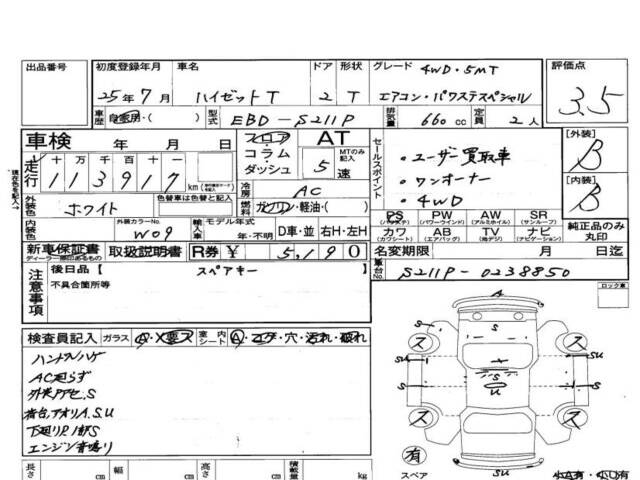 出品番号 初度登録年月 車名 ドア 形状 グレード 4WD・5MT 評価点
25年7月 ハイゼットT 2 T エアコン・パワステスペシャル 3.5
車歴 自家用・( ) 型式 EBD-S211P 排気量 660cc 定員 2人
車検 年 月 日 フロア AT
コラム MTのみ記入
ダッシュ 5速
走行 十万千百十一
113917 km
冷房 AC
燃料 ガソリン・軽油・( )
外装色 ホワイト 色替車は色替と記入
内装色 外装カラーNo. W09 輸入車 モデル年式 年・不明 D車・並 右H・左H
セールスポイント
・ユーザー買取車
・ワンオーナー
・4WD
[外装] B
[内装] B
PS PW AW SR
(パワステ) (パワーウインド) (アルミホイル) (サンルーフ)
カワ AB TV ナビ
(カワシート) (エアバッグ) (地デジ) (ナビゲーション)
純正品のみ丸印
新車保証書 取扱説明書 R券 ¥ 5,190 名変期限 月 日迄
ディーラー印のあるもの
車台No. S211P-0238850
注意事項 後日品 [ スペアキー ]
不具合箇所等
ロック車
検査員記入 ガラス A・X要ス 室内シート A・コゲ・穴・汚れ・破れ
ハンドルハゲ
AC足らず
外装アセ、S
荷台、アオリA、S、U
下廻りP、1部S
エンジン音鳴り
A
S S S
S S
SU S SU
S U S
ス ス ス ス
SU SU
有
スペア
長さ cm 幅 cm 高さ cm 積載量 kg
現在色を記入→